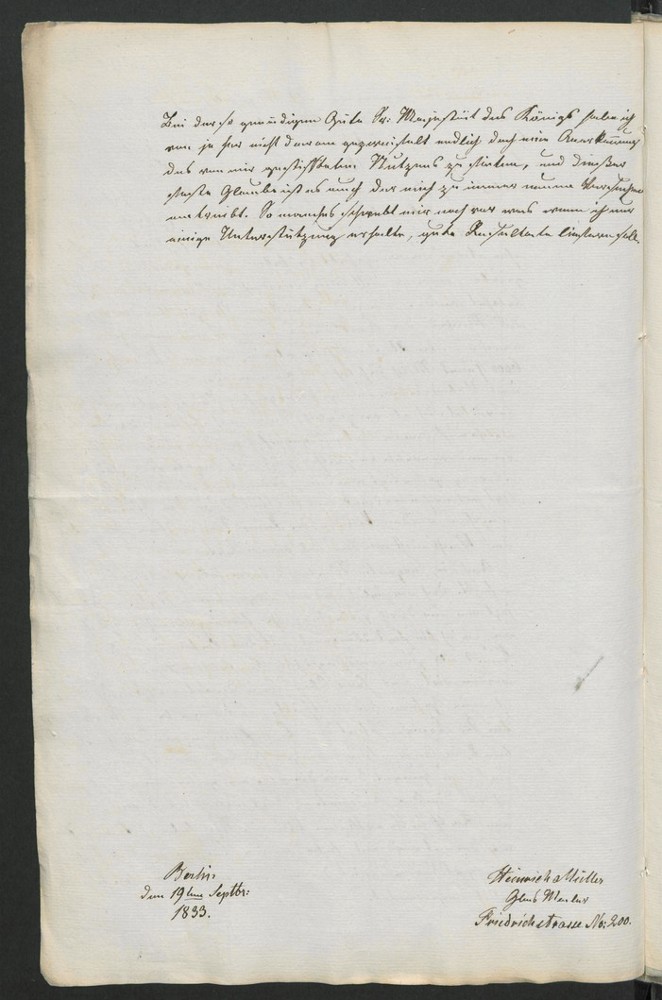 Bei der so gnaedigen Güte Sr: Majestät des Königs habe ich
von je her nicht daran gezweifelt endlich doch eine Anerkennung
des von mir gestifteten Nutzens zu finden, und dießer
feste Glaube ist es auch der mich zu immer neuen Versuchen
antreibt. So manches schwebt mir noch vor was wenn ich nur
einige Unterstützung erhalte, gute Resultate liefern soll.
Berlin
den 19ten Septbr:
1833.
Heinrich Müller
Glas Maler
Friedrichstrasse No: 200.